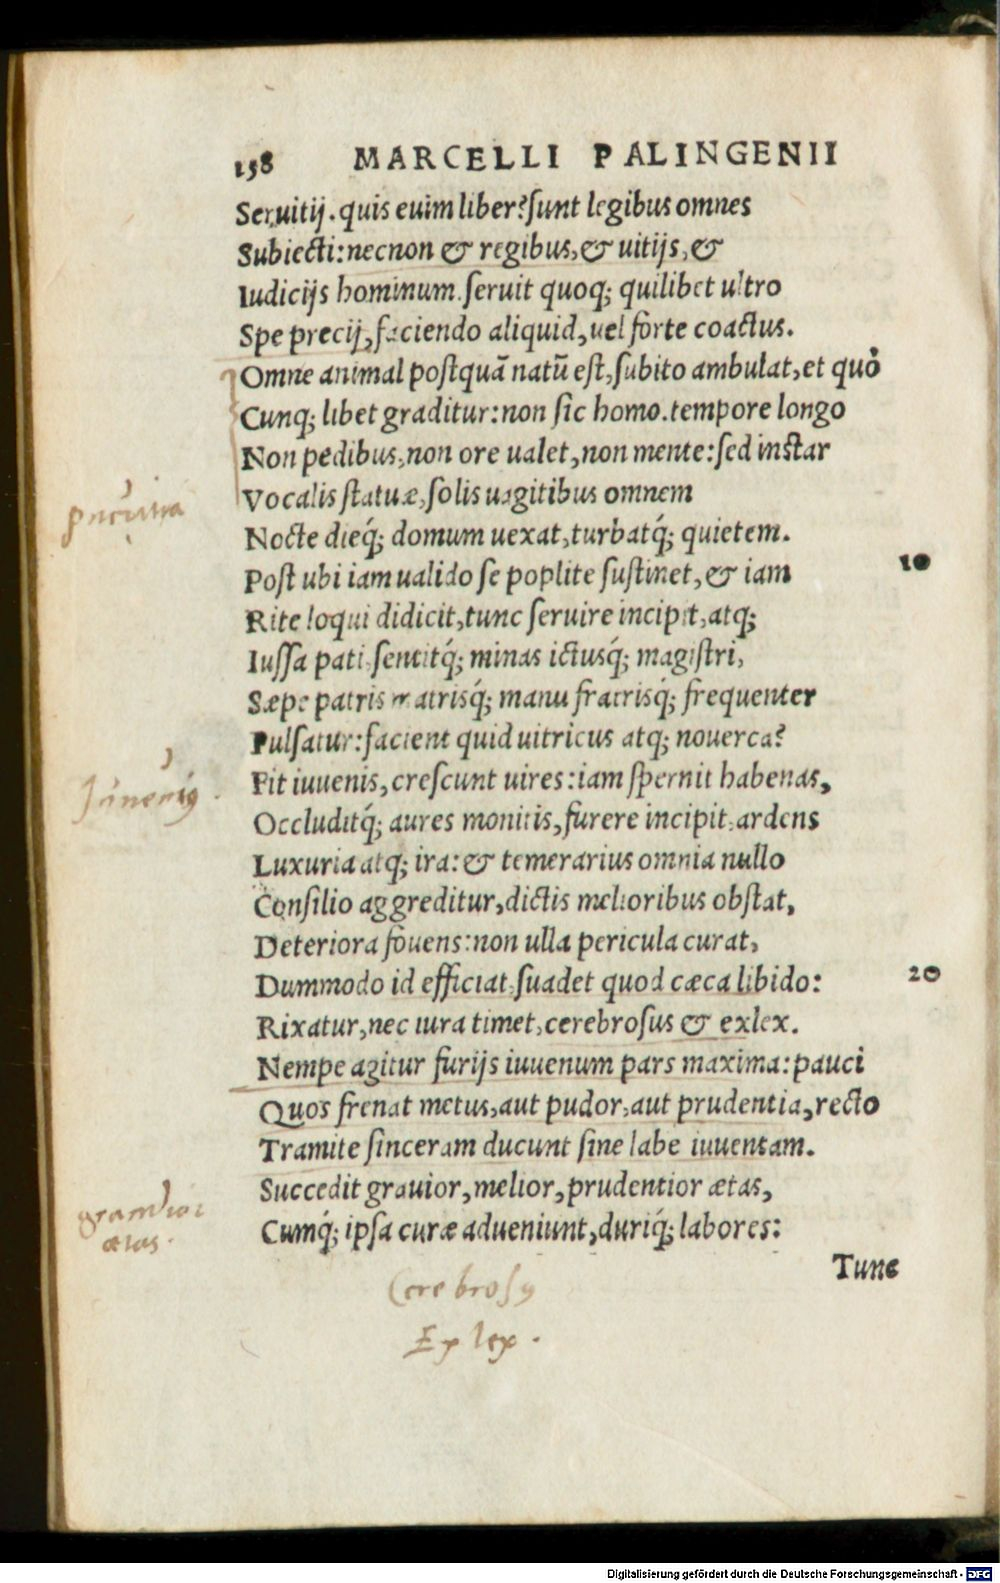 158 MARCELLI PALINGENII
Seruitij. quis euim liber? sunt legibus omnes
Subiecti: necnon & regibus, & uitijs, &
Iudicijs hominum. seruit quoq; quilibet ultro
Spe precij, faciendo aliquid, uel forte coactus.
Omne animal postquã natũ est, subito ambulat, et quò
Cunq; libet graditur: non sic homo. tempore longo
Non pedibus, non ore ualet, non mente: sed instar
Vocalis statuæ, solis uagitibus omnem
pueritia
Nocte dieq́; domum uexat, turbatq́; quietem.
Post ubi iam ualido se poplite sustinet, & iam 10
Rite loqui didicit, tunc seruire incipit, atq;
Iussa pati, sentitq́; minas ictusq́; magistri,
Sæpe patris matrisq́; manu fratrisq́; frequenter
Pulsatur: facient quid uitricus atq; nouerca?
Fit iuuenis, crescunt uires: iam spernit habenas,
Iuuenis.
Occluditq́; aures monitis, furere incipit, ardens
Luxuria atq; ira: & temerarius omnia nullo
Consilio aggreditur, dictis melioribus obstat,
Deteriora fouens: non ulla pericula curat,
Dummodo id efficiat, suadet quod cæca libido: 20
Rixatur, nec iura timet, cerebrosus & exlex.
Nempe agitur furijs iuuenum pars maxima: pauci
Quos frenat metus, aut pudor, aut prudentia, recto
Tramite sinceram ducunt sine labe iuuentam.
Succedit grauior, melior, prudentior ætas,
grandior
ætas.
Cumq́; ipsa curæ adueniunt, duriq́; labores:
Tunc
Cerebrosus
Exlex.
Digitalisierung gefördert durch die Deutsche Forschungsgemeinschaft - DFG